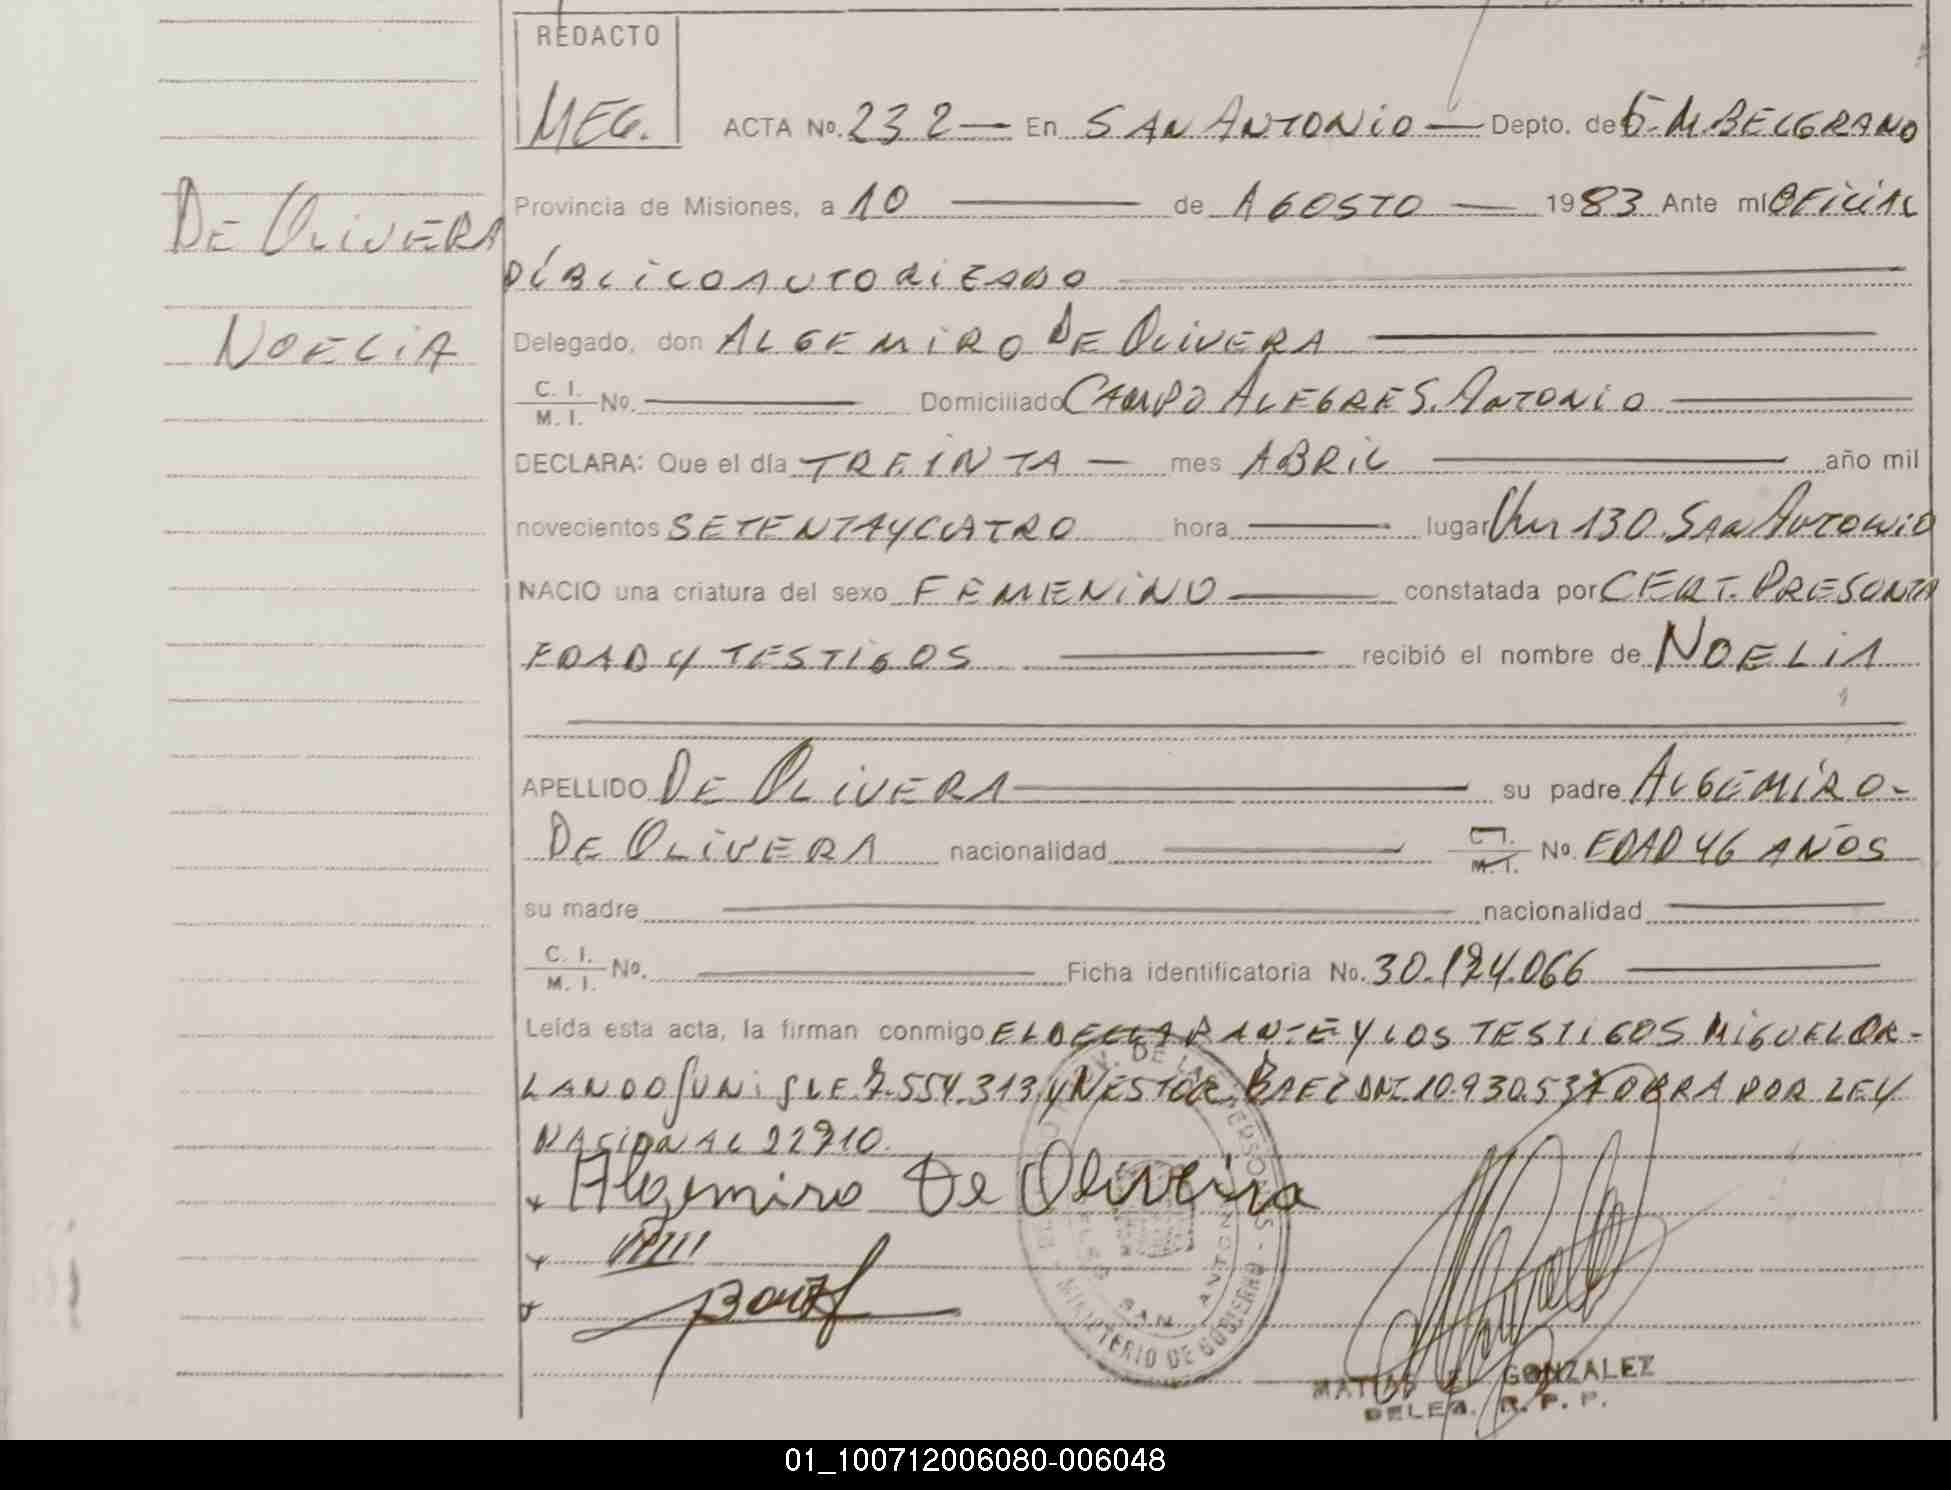 REDACTO
MEG.
ACTA No. 232 — En SAN ANTONIO — Depto. de G. M. BELGRANO
DE OLIVERA
Provincia de Misiones, a 10 — de AGOSTO — 1983 Ante mí OFICIAL
PÚBLICO AUTORIZADO
NOELIA
Delegado, don ALGEMIRO DE OLIVERA
C. I.
M. I. No. — Domiciliado CAMPO ALEGRE S. ANTONIO
DECLARA: Que el día TREINTA — mes ABRIL — año mil
novecientos SETENTA Y CUATRO hora — lugar Km 130. SAN ANTONIO
NACIO una criatura del sexo FEMENINO — constatada por CERT. PRESONTA
EDAD Y TESTIGOS — recibió el nombre de NOELIA
APELLIDO DE OLIVERA — su padre ALGEMIRO-
DE OLIVERA nacionalidad — C. I.
M. I. No. EDAD 46 AÑOS
su madre — nacionalidad —
C. I.
M. I. No. — Ficha identificatoria No. 30.124.066
Leída esta acta, la firman conmigo EL DECLARANTE Y LOS TESTIGOS MIGUEL OR-
LANDO L.E. 7.554.313 y NESTOR BAEZ DNI. 10.930.537 OBRA POR LEY
NACIONAL 22710.
Algemiro De Oliveira
DE LAS PERSONAS
SAN ANTONIO
MINISTERIO DE GOBIERNO
MATIAS E. GONZALEZ
DELEG. R. P. P.
01_100712006080-006048